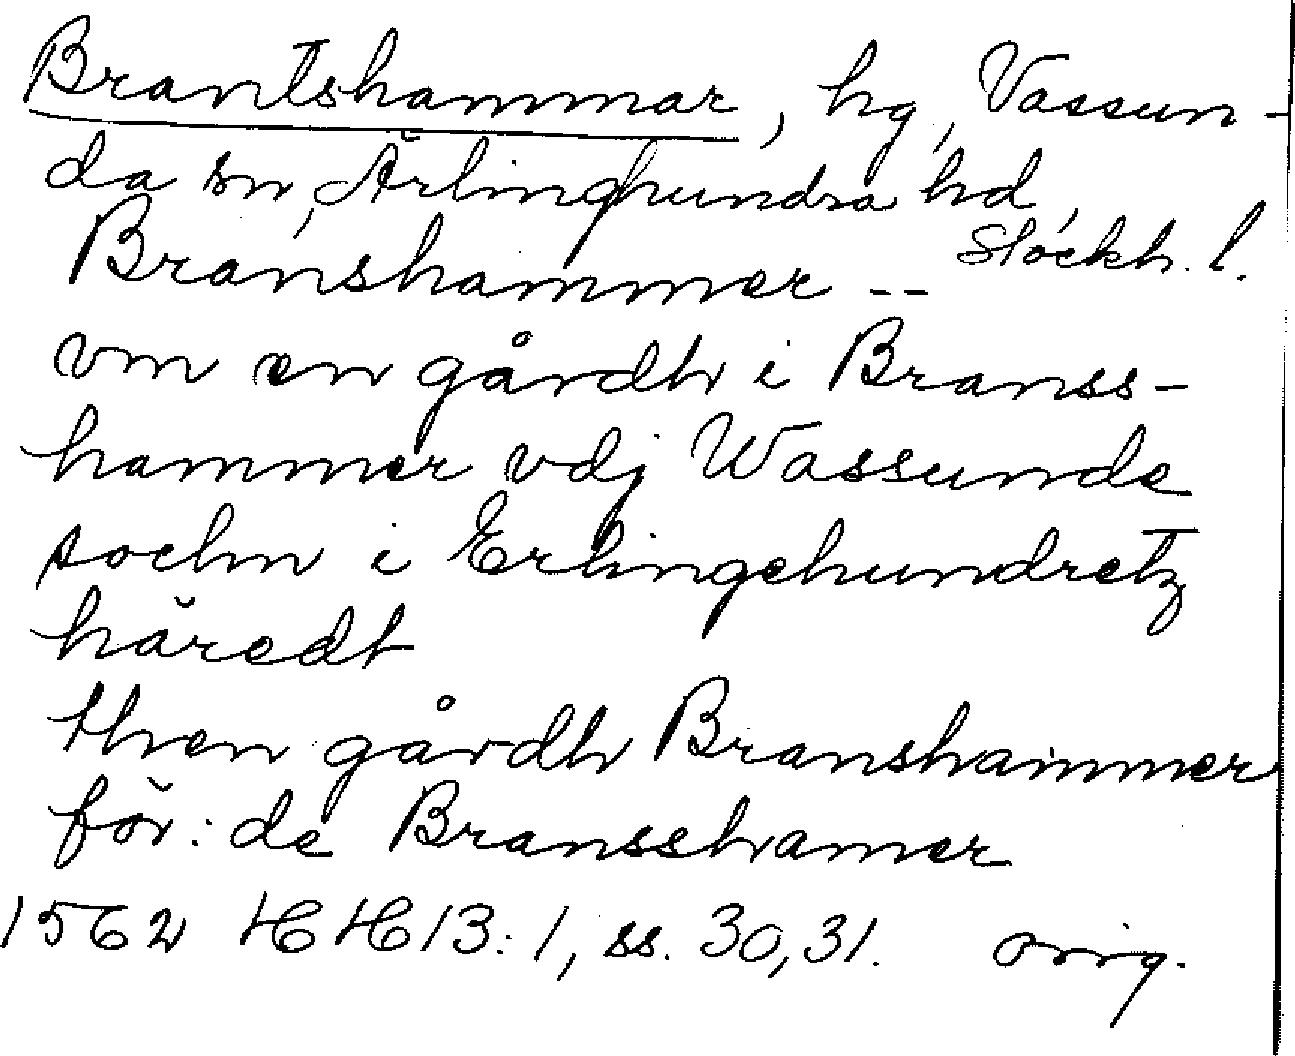 Brantshammar, hg, Vassun-
da sn, Ärlinghundra hd,
Stockh. l.
Branshammer --
vm en gårdh i Branss-
hammer vdj Wassunde
sochn i Erlingehundretz
häredt
then gårdh Branshammer
för: de Bransehamer
1562 HH13:1, ss. 30,31. orig.